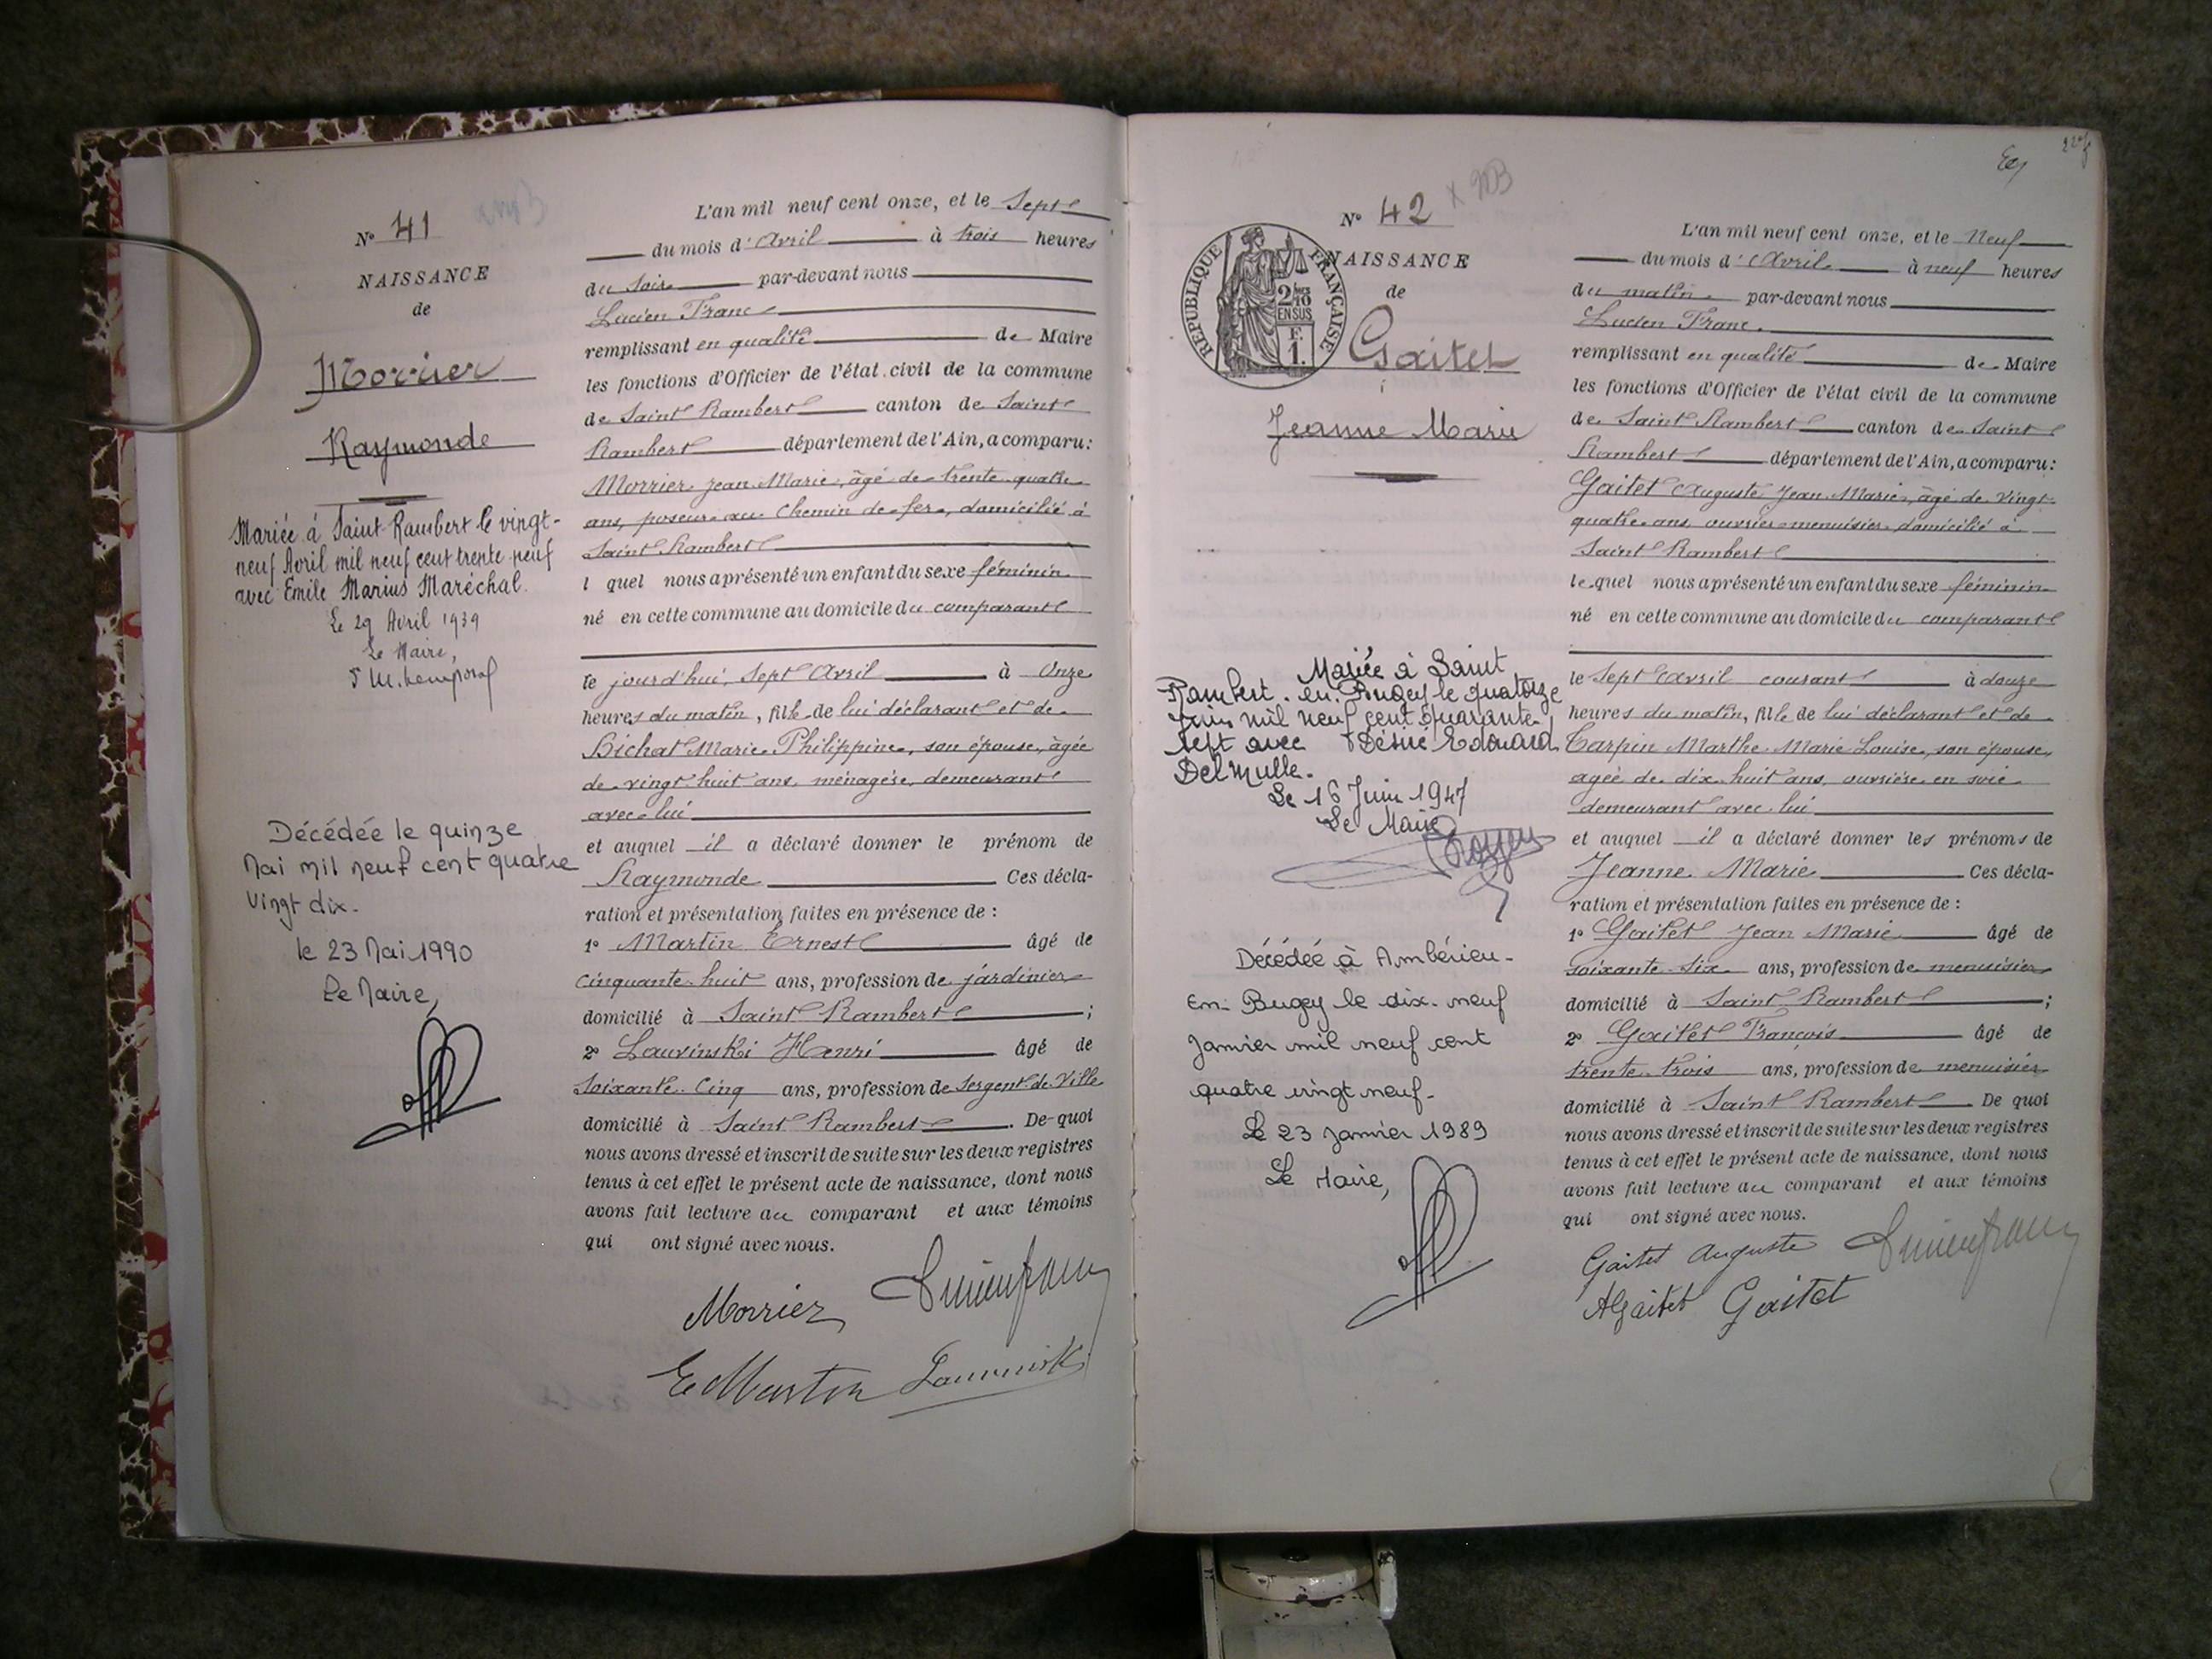 N° 41
NAISSANCE
de
Morrier
Raymonde
Mariée à Saint-Rambert le vingt-
neuf Avril mil neuf cent trente-neuf
avec Emile Marius Maréchal.
Le 29 Avril 1939
Le Maire,
Décédée le quinze
Mai mil neuf cent quatre
vingt dix.
le 23 Mai 1990
Le Maire,
L'an mil neuf cent onze, et le Sept
du mois d'Avril à trois heures
du soir par-devant nous
Lucien Franc
remplissant en qualité de Maire
les fonctions d'Officier de l'état civil de la commune
de Saint Rambert canton de Saint
Rambert département de l'Ain, a comparu:
Morrier Jean Marie, âgé de trente quatre
ans, poseur au Chemin de fer, domicilié à
Saint Rambert
l quel nous a présenté un enfant du sexe féminin
né en cette commune au domicile du comparant
le jourd'hui, Sept Avril à Onze
heures du matin, fille de lui déclarant et de
Bichat Marie Philippine, son épouse, âgée
de vingt huit ans, ménagère, demeurant
avec lui
et auquel il a déclaré donner le prénom de
Raymonde Ces décla-
ration et présentation faites en présence de :
1° Martin Ernest âgé de
cinquante-huit ans, profession de jardinier
domicilié à Saint Rambert ;
2° Louvinski Henri âgé de
soixante-cinq ans, profession de Sergent de Ville
domicilié à Saint Rambert. De quoi
nous avons dressé et inscrit de suite sur les deux registres
tenus à cet effet le présent acte de naissance, dont nous
avons fait lecture au comparant et aux témoins
qui ont signé avec nous.
Morrier
E Martin
N° 42
NAISSANCE
de
RÉPUBLIQUE FRANÇAISE
2/10
EN SUS
F.
1.
Gaitet
Jeanne Marie
Mariée à Saint
Rambert-en-Bugey le quatorze
Juin mil neuf cent quarante
sept avec Désiré Edouard
Delmulle.
Le 16 Juin 1947
Le Maire
Décédée à Ambérieu-
En-Bugey le dix-neuf
Janvier mil neuf cent
quatre vingt neuf-
Le 23 Janvier 1989
Le Maire,
L'an mil neuf cent onze, et le Neuf
du mois d'Avril à neuf heures
du matin par-devant nous
Lucien Franc.
remplissant en qualité de Maire
les fonctions d'Officier de l'état civil de la commune
de Saint Rambert canton de Saint
Rambert département de l'Ain, a comparu:
Gaitet Auguste Jean Marie, âgé de vingt-
quatre ans ouvrier menuisier domicilié à
Saint Rambert
le quel nous a présenté un enfant du sexe féminin
né en cette commune au domicile du comparant
le Sept Avril courant à douze
heures du matin, fille de lui déclarant et de
Carpin Marthe Marie Louise, son épouse,
agée de dix huit ans, ouvrière en soie
demeurant avec lui
et auquel il a déclaré donner les prénoms de
Jeanne Marie Ces décla-
ration et présentation faites en présence de :
1° Gaitet Jean Marie âgé de
soixante-six ans, profession de menuisier
domicilié à Saint Rambert ;
2° Gaitet François âgé de
trente-trois ans, profession de menuisier
domicilié à Saint Rambert. De quoi
nous avons dressé et inscrit de suite sur les deux registres
tenus à cet effet le présent acte de naissance, dont nous
avons fait lecture au comparant et aux témoins
qui ont signé avec nous.
Gaitet Auguste
AGaitet Gaitet